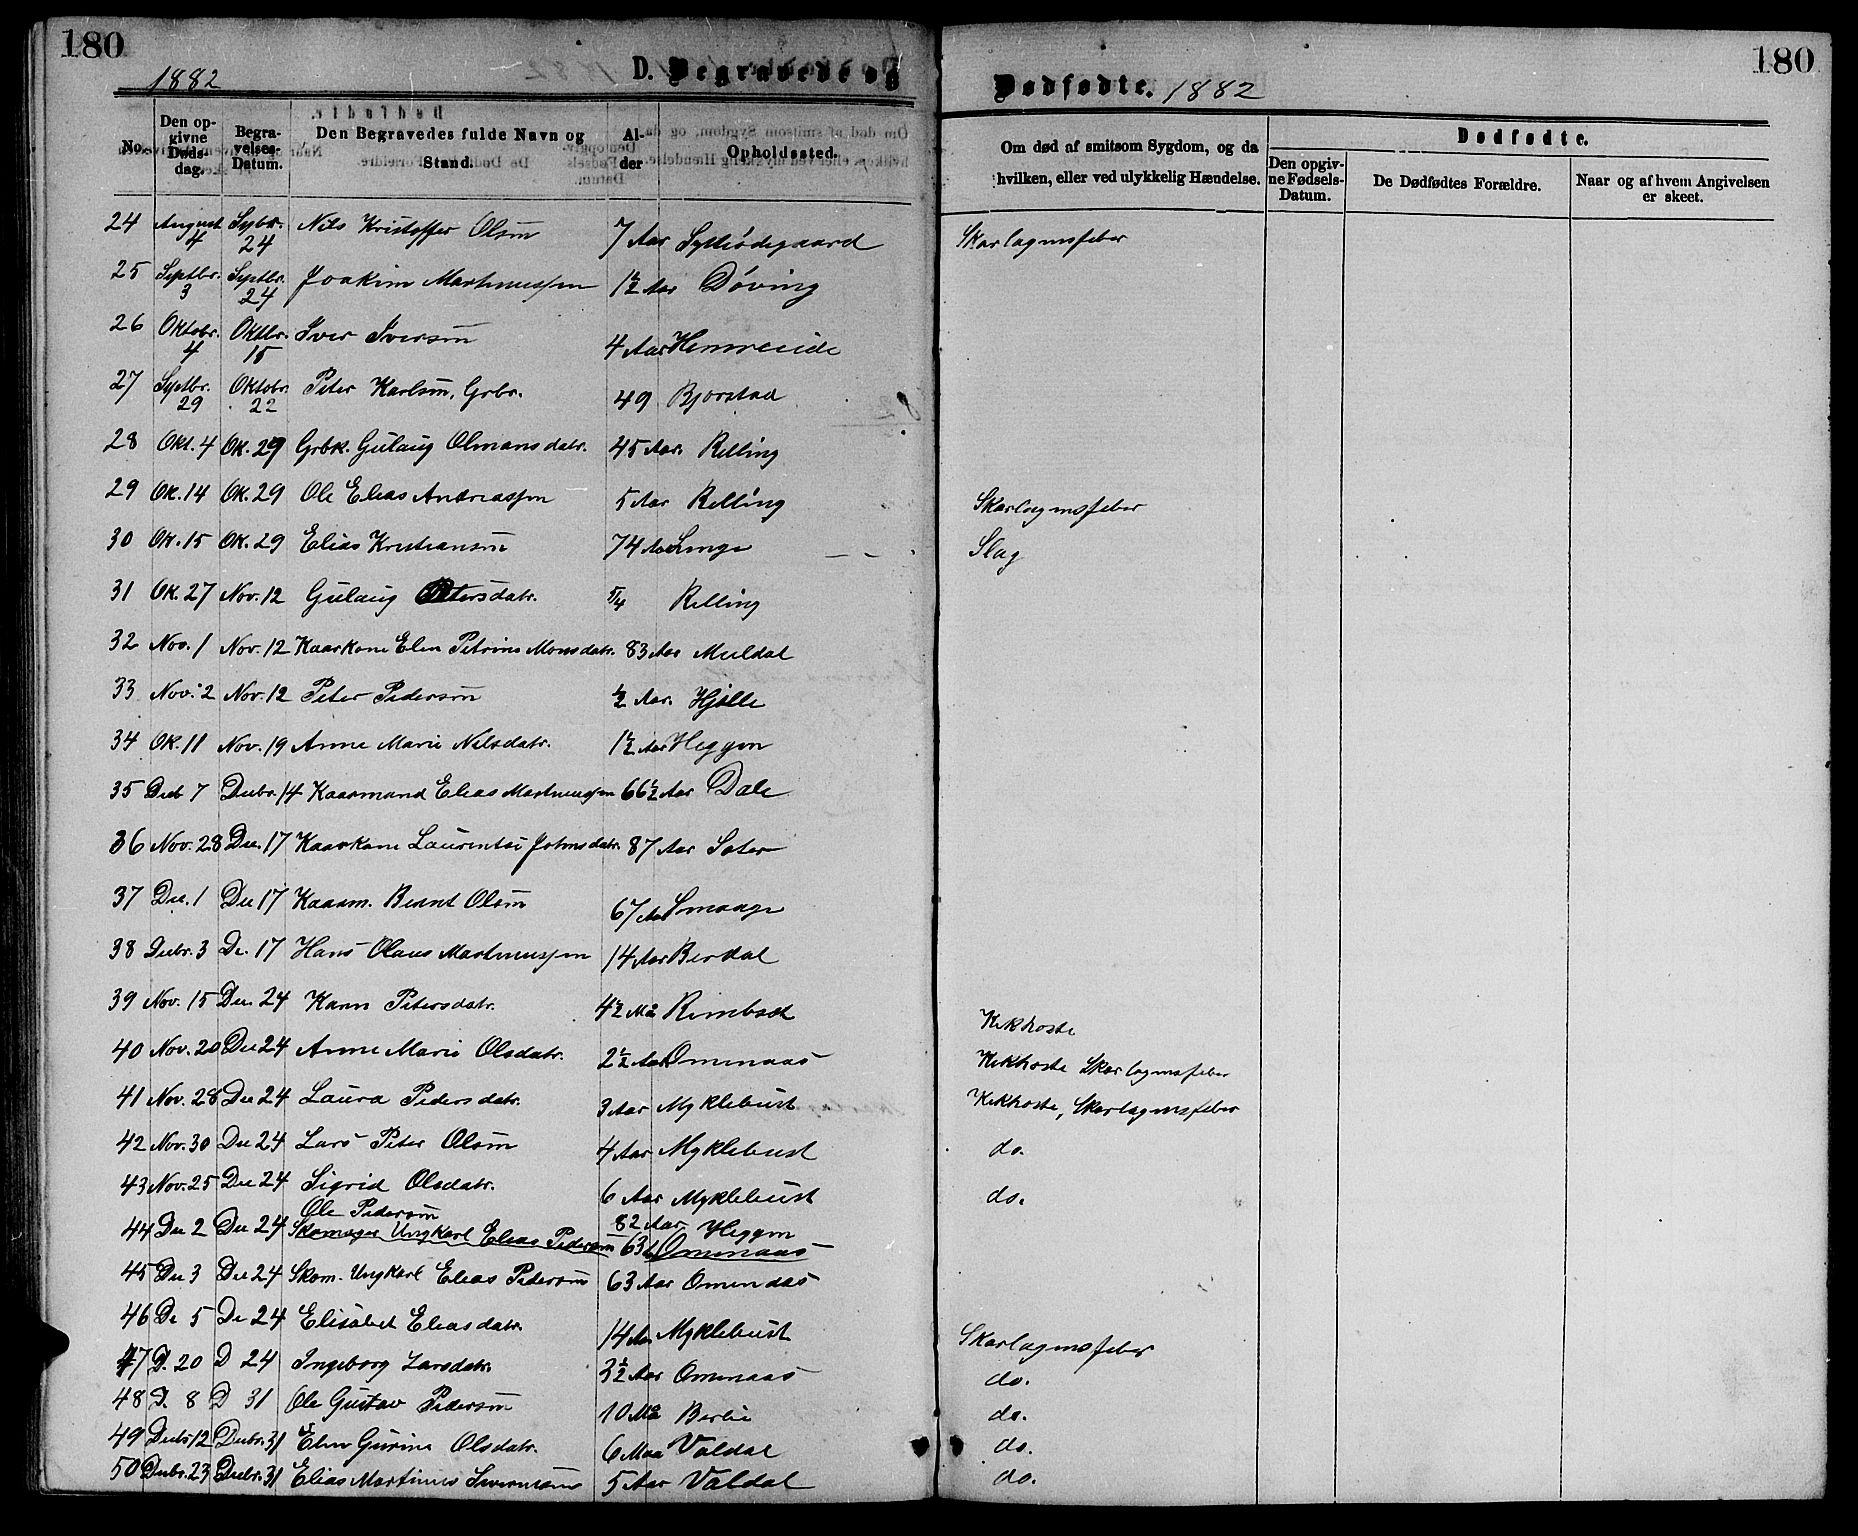 180
1882
D. Begravede og
Dødfødte. 1882
180
No. | Den opgivne Dødsdag. | Begravelses-Datum. | Den Begravedes fulde Navn og Stand. | Alder | Opholdssted. | Om død af smitsom Sygdom, og da hvilken, eller ved ulykkelig Hændelse. | Dødfødte. | Den opgivne Fødsels-Datum. | De Dødfødtes Forældre. | Naar og af hvem Angivelsen er skeet.
24 August 4 Sptbr. 24 Nils Kristoffer Olsen 7 Aar Skarlagensfeber
25 Septbr. 3 Septbr. 24 Joakim Martinussen 1½ Aar Døving
26 Oktobr. 4 Oktbr. 15 Iver Iversen 4 Aar
27 Septbr. 29 Oktobr. 22 Peter Karlsen, Grbr. 49 Bjorstad
28 Okt. 4 Ok. 29 Grbk. Gulaug Olmansdatr. 45 Aar. Relling
29 Ok. 14 Ok. 29 Ole Elias Andreassen 5 Aar Relling Skarlagensfeber
30 Ok. 15 Ok. 29 Elias Kristiansen 74 Aar Linge Slag
31 Ok. 27 Nov. 12 Gulaug Petersdatr. 5/4 Relling
32 Nov. 1 Nov. 12 Kaarkone Elen Petrine Monsdatr. 83 Aar Muldal
33 Nov. 2 Nov. 12 Peter Pedersen ½ Aar. Hjelle
34 Ok. 11 Nov. 19 Anne Marie Nilsdatr. 1½ Aar Heggen
35 Decb 7 Decbr. 14 Kaarmand Elias Martinussen 66½ Aar Dale
36 Nov. 28 Dec. 17 Kaarkone Laurentse Johnsdatr. 87 Aar Sater
37 Dec. 1 Dec 17 Kaarm. Berent Olsen 67 Aar Smaage
38 Decbr. 3 De. 17 Hans Olaus Martinussen 14 Aar Berdal
39 Nov. 15 Dec. 24 Karen Petersdatr. 4½ Ma Rembset Kikhoste
40 Nov. 20 Dec 24 Anne Marie Olsdatr. 2½ Aar Omenaas Kikhoste Skarlagensfeber
41 Nov. 28 Dec 24 Laura Pedersdatr. 3 Aar Myklebust Kikhoste, Skarlagensfeber
42 Nov. 30 Dec 24 Lars Peter Olsen 4 Aar Myklebust do.
43 Nov. 25 Dec 24 Sigrid Olsdatr. 6 Aar Myklebust do.
Ole Pedersen 82 Aar Heggen
44 Dec 2 Dec 24 Skomager Ungkarl Elias Pedersen 63 Omenaas
45 Dec 3 Dec 24 Skom. Ungkarl Elias Pedersen 63 Aar Omenaas
46 De 5 De 24 Elisabet Eleasdatr. 14 Aar Myklebust Skarlagensfeber
47 D. 20 D 24 Ingeborg Larsdatr. 3½ Aar Omenaas do.
48 D. 8 D 31 Ole Gustav Pedersen 10 Ma Berlie do.
49 Decbr 12 Decbr. 31 Elen Gurine Olsdatr. 6 Maa Valdal do.
50 Decbr. 23 Decbr. 31 Elias Martinus Severinsen 5 Aar Valdal do.